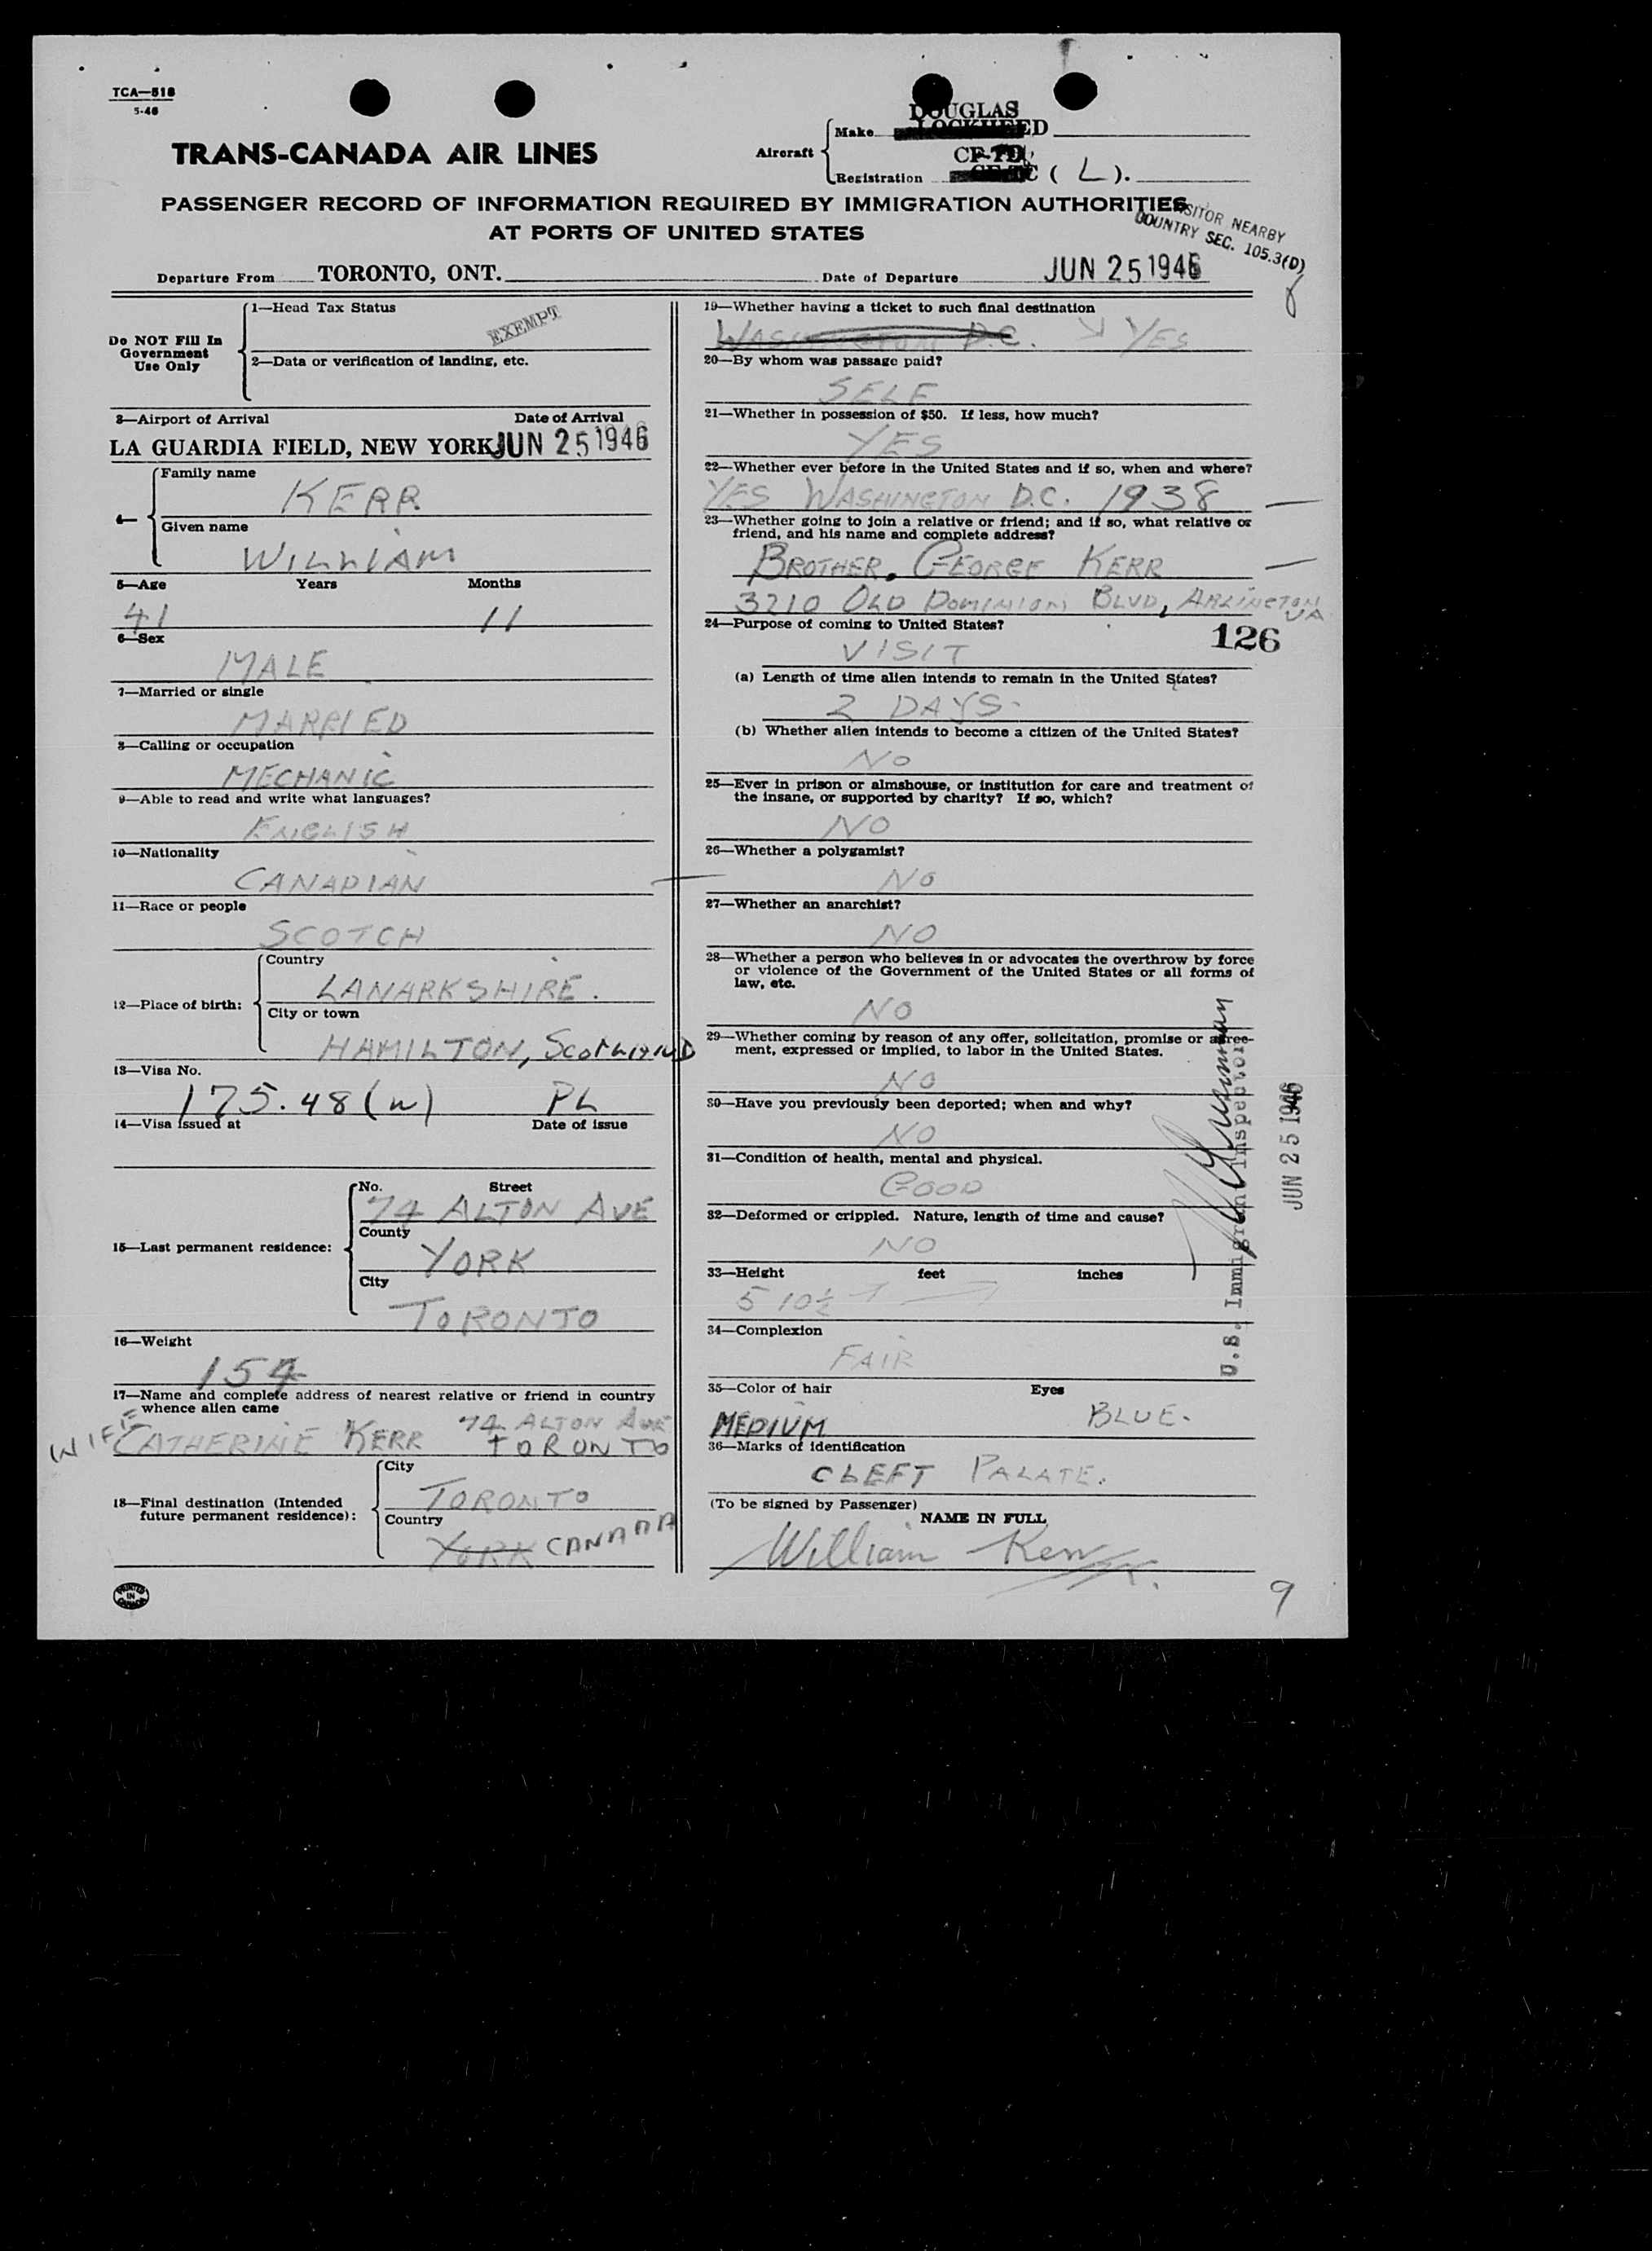 TCA—518
5-46
TRANS-CANADA AIR LINES
Aircraft
Make DOUGLAS
LOCKHEED
Registration CF-TD
(L).
PASSENGER RECORD OF INFORMATION REQUIRED BY IMMIGRATION AUTHORITIES
AT PORTS OF UNITED STATES
VISITOR NEARBY
COUNTRY SEC. 105.3(D)
Departure From TORONTO, ONT. Date of Departure JUN 25 1946
Do NOT Fill In
Government
Use Only
1—Head Tax Status
EXEMPT
2—Data or verification of landing, etc.
3—Airport of Arrival Date of Arrival
LA GUARDIA FIELD, NEW YORK JUN 25 1946
4—
Family name
KERR
Given name
WILLIAM
5—Age Years Months
41 11
6—Sex
MALE
7—Married or single
MARRIED
8—Calling or occupation
MECHANIC
9—Able to read and write what languages?
ENGLISH
10—Nationality
CANADIAN
11—Race or people
SCOTCH
12—Place of birth:
Country
LANARKSHIRE.
City or town
HAMILTON, SCOTLAND
13—Visa No.
175.48 (w) PL
14—Visa issued at Date of issue
15—Last permanent residence:
No. Street
74 ALTON AVE
County
YORK
City
TORONTO
16—Weight
154
17—Name and complete address of nearest relative or friend in country
whence alien came
WIFE CATHERINE KERR 74 ALTON AVE
TORONTO
18—Final destination (Intended
future permanent residence):
City
TORONTO
Country
YORK CANADA
PRINTED
IN
CANADA
19—Whether having a ticket to such final destination
WASHINGTON D.C. YES
20—By whom was passage paid?
SELF
21—Whether in possession of $50. If less, how much?
YES
22—Whether ever before in the United States and if so, when and where?
YES WASHINGTON D.C. 1938
23—Whether going to join a relative or friend; and if so, what relative or
friend, and his name and complete address?
BROTHER. GEORGE KERR
3210 OLD DOMINION BLVD, ARLINGTON
VA
24—Purpose of coming to United States?
126
VISIT
(a) Length of time alien intends to remain in the United States?
2 DAYS.
(b) Whether alien intends to become a citizen of the United States?
NO
25—Ever in prison or almshouse, or institution for care and treatment of
the insane, or supported by charity? If so, which?
NO
26—Whether a polygamist?
NO
27—Whether an anarchist?
NO
28—Whether a person who believes in or advocates the overthrow by force
or violence of the Government of the United States or all forms of
law, etc.
NO
29—Whether coming by reason of any offer, solicitation, promise or agree-
ment, expressed or implied, to labor in the United States.
NO
30—Have you previously been deported; when and why?
NO
31—Condition of health, mental and physical.
GOOD
32—Deformed or crippled. Nature, length of time and cause?
NO
33—Height feet inches
5 10½
34—Complexion
FAIR
35—Color of hair Eyes
MEDIUM BLUE.
36—Marks of identification
CLEFT PALATE.
(To be signed by Passenger)
NAME IN FULL
William Kerr
U.S. Immigrant Inspector
JUN 25 1946
9